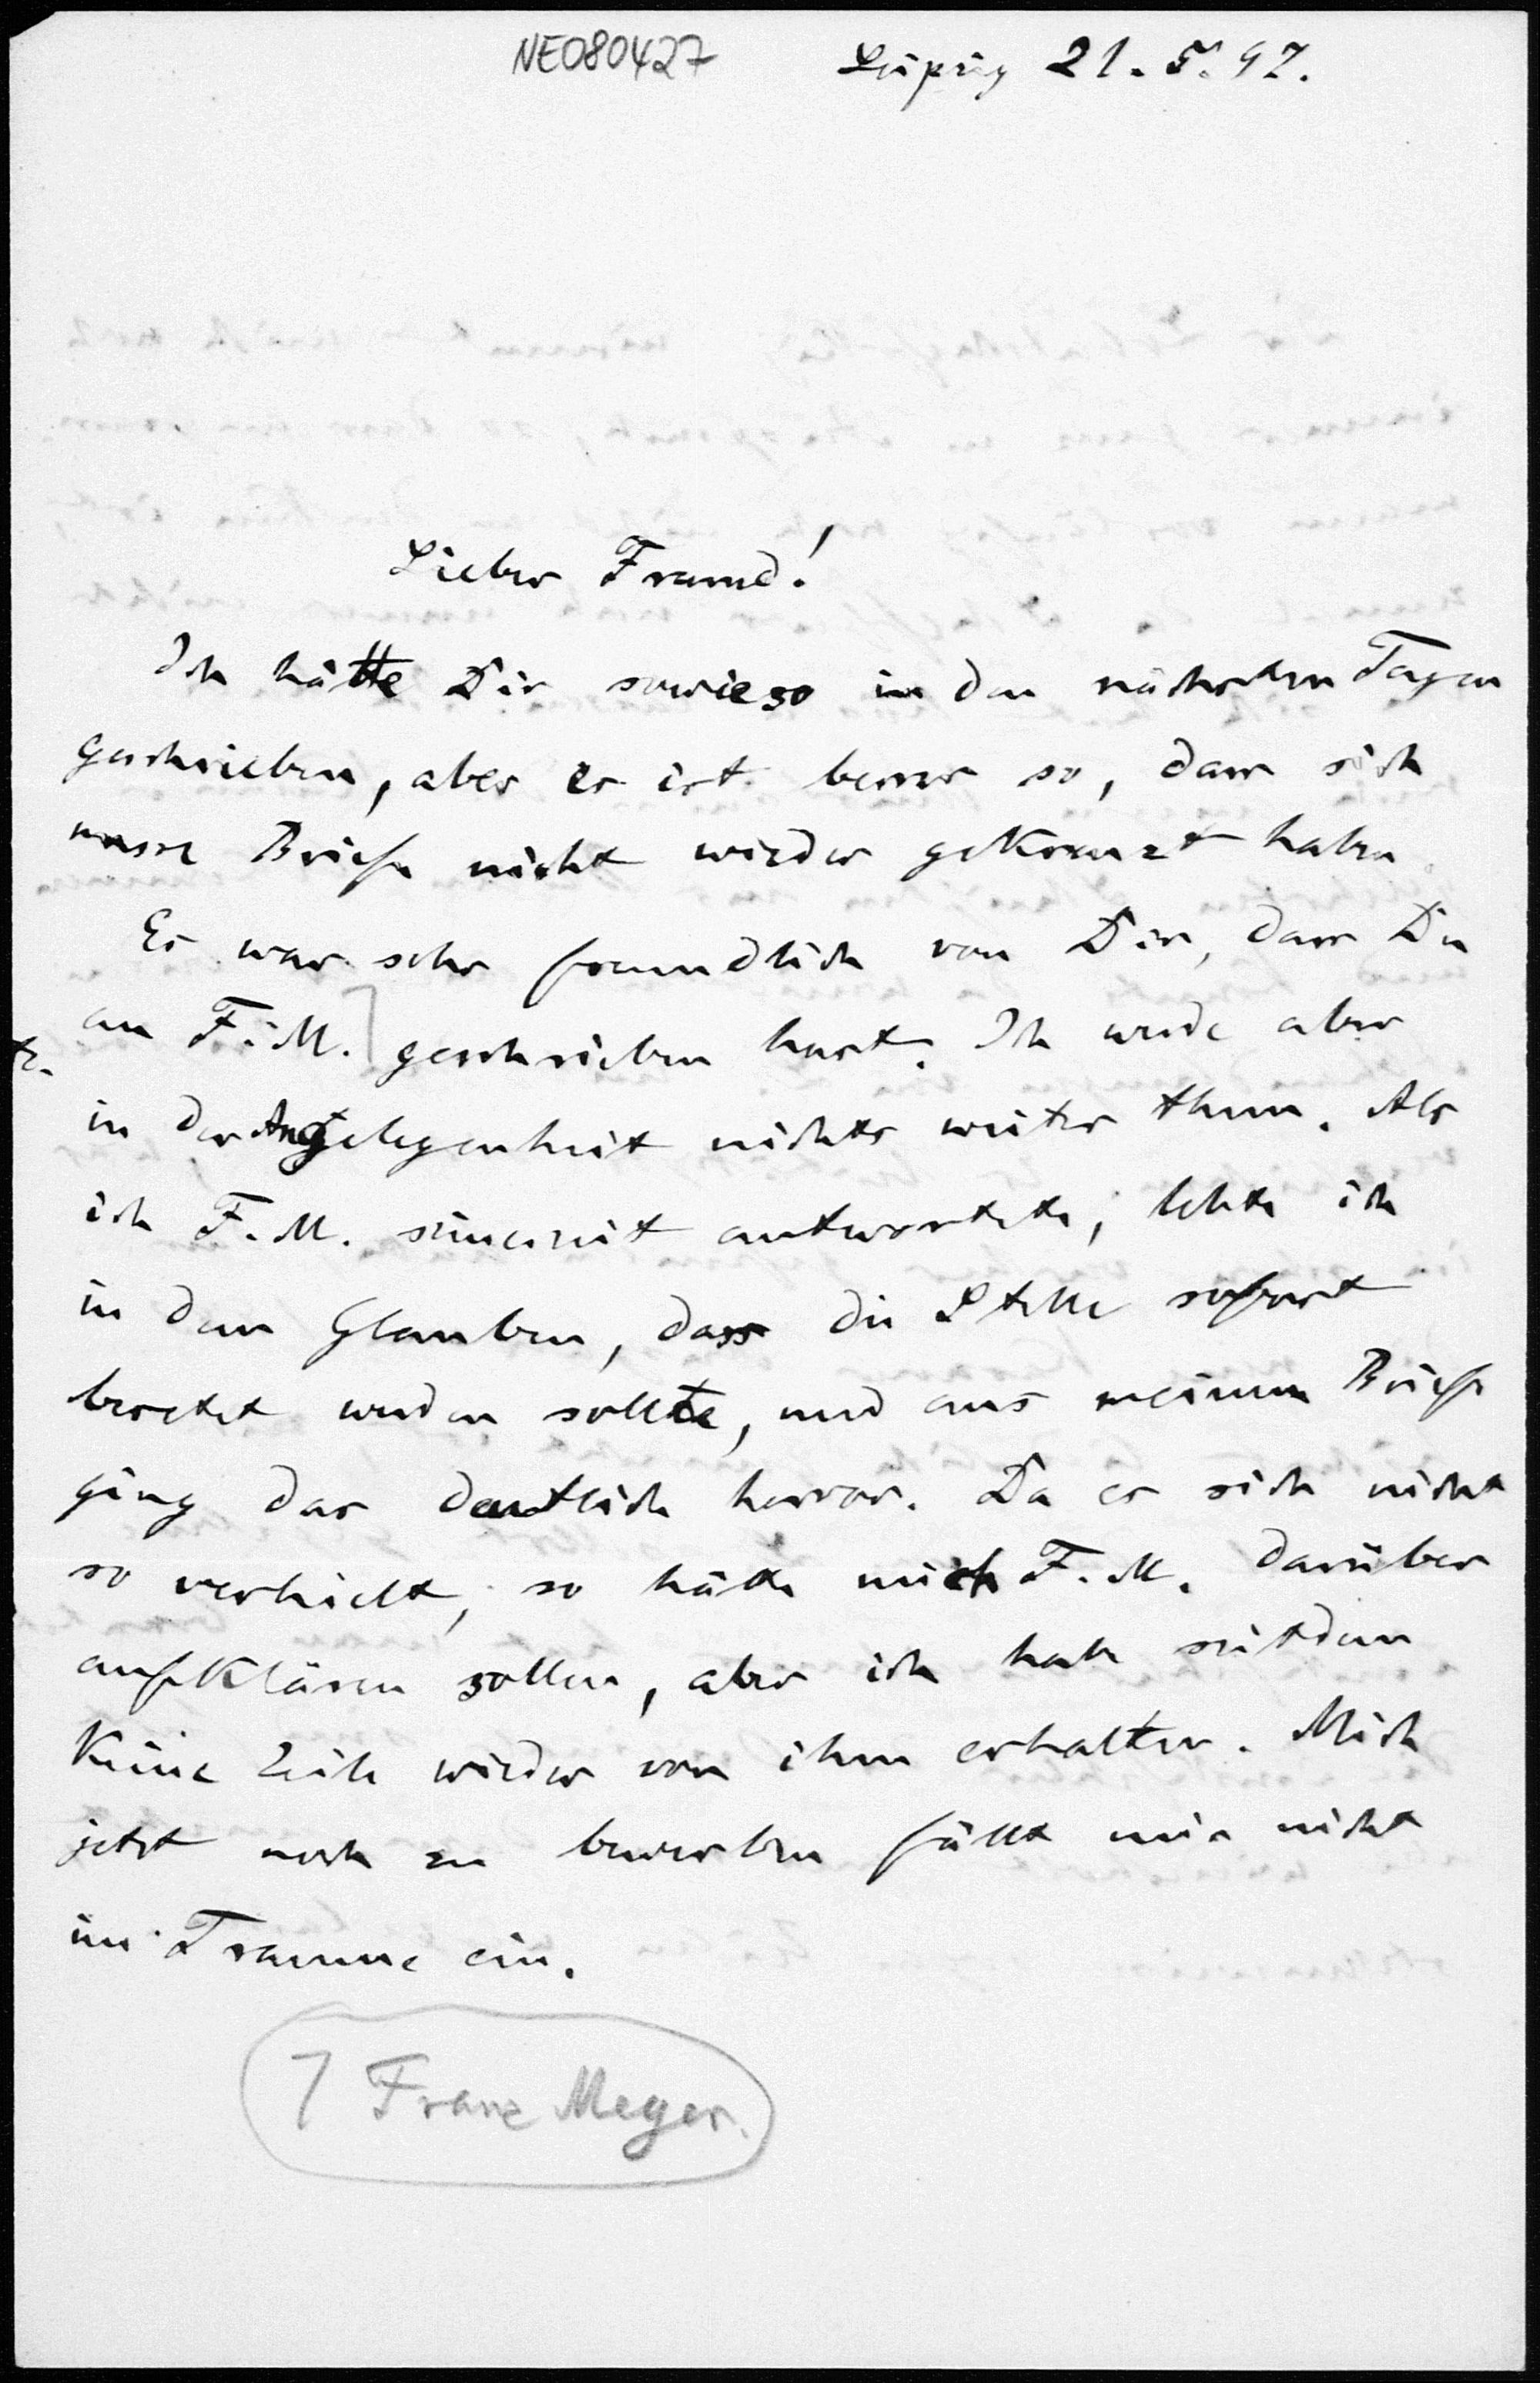 NE080427
Leipzig 21. 5. 97.
Lieber Freund!
Ich hätte Dir sowieso in den nächsten Tagen
geschrieben, aber es ist besser so, dass sich
unsre Briefe nicht wieder gekreuzt haben.
Es war sehr freundlich von Dir, dass Du
an F. M. ⌉ geschrieben hast. Ich werde aber
in der Angelegenheit nichts weiter thun. Als
ich F. M. seinerzeit antwortete, lebte ich
in dem Glauben, dass die Stelle sofort
besetzt werden sollte, und aus meinem Briefe
ging das deutlich hervor. Da es sich nicht
so verhielt, so hätte mich F. M. darüber
aufklären sollen, aber ich habe seitdem
keine Zeile wieder von ihm erhalten. Mich
jetzt noch zu bewerben fällt mir nicht
im Traume ein.
⌉ Franz Meyer.